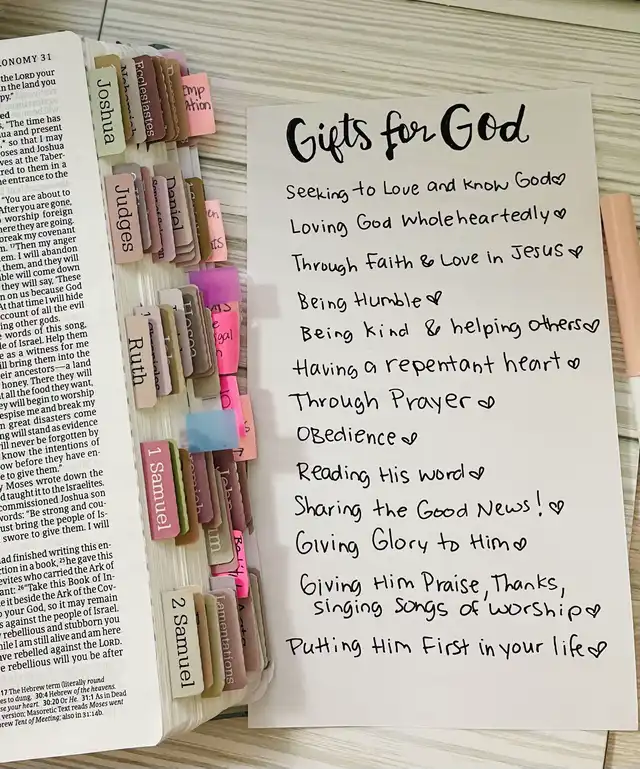 ONOMY 31
the LORD your
in the land you
"The time has
ua and present
so that I may
Moses and Joshua
ves at the Taber-
red to them in a
the entrance to the
"You are about to
After you are gone,
worship foreign
here they are going.
break my covenant
Then my anger
em. I will abandon
them, and they will
ble will come down
they will say, 'These
ed on us because God
At that time I will hide
account of all the evil
ing other gods.
e words of this song,
le of Israel. Help them
e as a witness for me
ill bring them into the
eir ancestors—a land
honey. There they will
t all the food they want,
ey will begin to worship
espise me and break my
n great disasters come
ng will stand as evidence
ill never be forgotten by
know the intentions of
ow before they have en-
e to give them."
y Moses wrote down the
d taught it to the Israelites.
commissioned Joshua son
words: "Be strong and cou-
ust bring the people of Is-
swore to give them. I will
ad finished writing this en-
ction in a book, 25he gave this
evites who carried the Ark of
ant: 26"Take this Book of In-
e it beside the Ark of the Cov-
o your God, so it may remain
s against the people of Israel.
y rebellious and stubborn you
hile I am still alive and am here
ve rebelled against the LORD.
e rebellious will you be after
17 The Hebrew term (literally round
es to dung. 30:4 Hebrew of the heavens.
se your heart. 30:20 Or He. 31:1 As in Dead
version; Masoretic Text reads Moses went
brew Tent of Meeting; also in 31:14b.
Joshua
Ecclesiastes
Judges
Daniel
Ruth
Hosea
1 Samuel
John
2 Samuel
Lamentations
Gifts for God
Seeking to Love and know God♡
Loving God wholeheartedly♡
Through Faith & Love in Jesus ♡
Being Humble♡
Being kind & helping others♡
Having a repentant heart ♡
Through Prayer ♡
OBedience♡
Reading His word♡
Sharing the Good News! ♡
Giving Glory to Him♡
Giving Him Praise, Thanks,
singing songs of worship♡
Putting Him First in your life♡